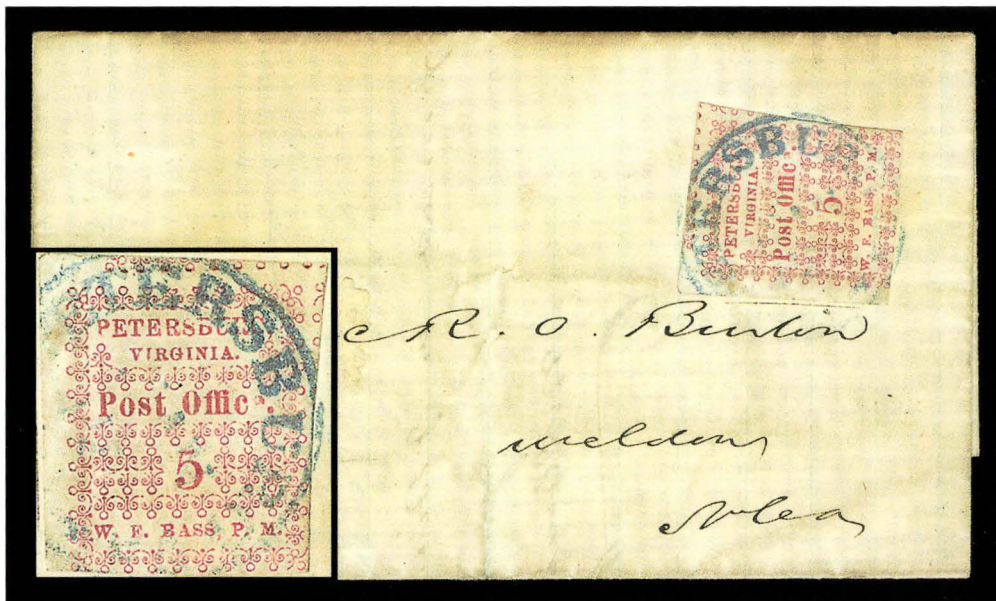 PETERSBU
VIRGINIA.
Post Offic
5
W. E. BASS, P. M.
TERSBUR
R. O. Burton
Weldon
N Ca
TERSBU
PETERSBU
VIRGINIA.
Post Offic.
5
W. E. BASS, P. M.